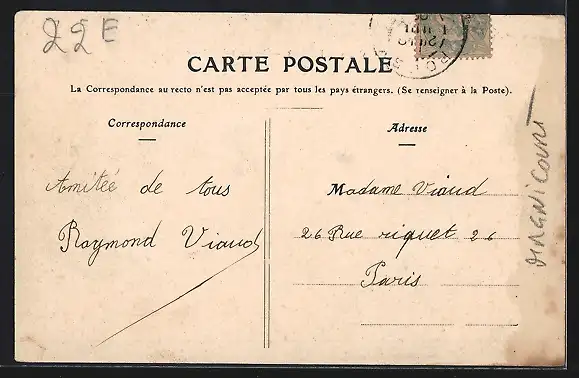 22E
CARTE POSTALE
La Correspondance au recto n'est pas acceptée par tous les pays étrangers. (Se renseigner à la Poste).
Correspondance
Amitée de tous
Raymond Viaud
Adresse
Madame Viaud
26 Rue riquet 26
Paris